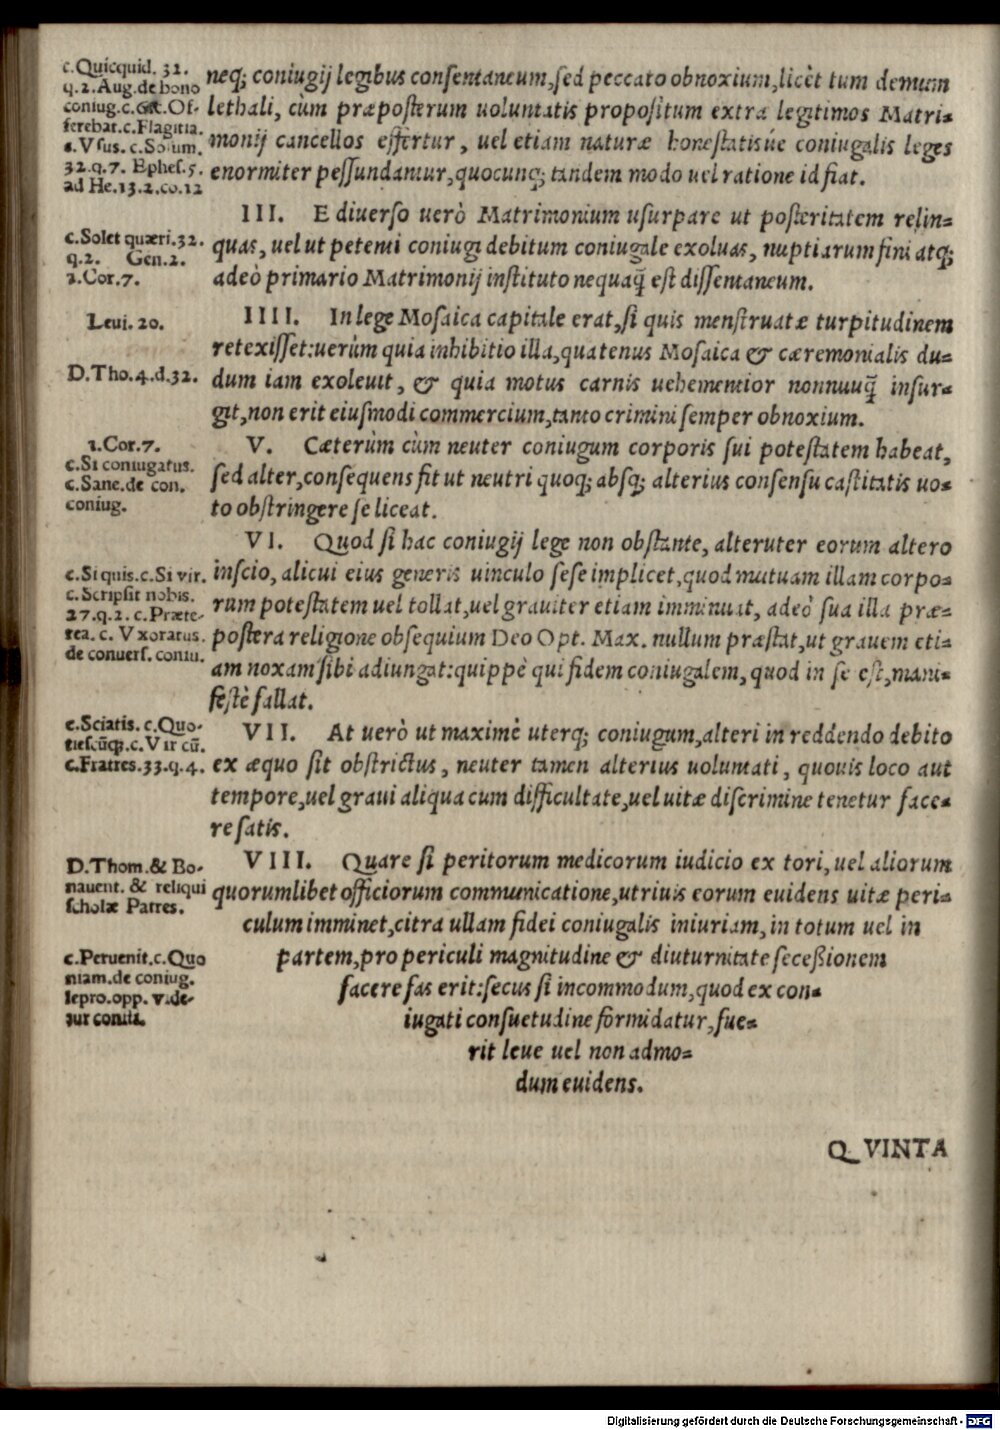 c.Quicquid. 32.
q.2. Aug. de bono
coniug.c. Of-
ferebat.c.Flagitia.
c.Vsus. c.Solum.
32.q.7. Ephes.5.
ad He.13.2.co.12
neq; coniugij legibus consentaneum, sed peccato obnoxium, licèt tum demum
lethali, cùm præposterum uoluntatis propositum extra legitimos Matri-
monij cancellos effertur, uel etiam naturæ honestatisúe coniugalis leges
enormiter pessundantur, quocunq; tandem modo uel ratione id fiat.
c.Solet quæri.32.
q.2. Gen.2.
1.Cor.7.
III. E diuerso uerò Matrimonium usurpare ut posteritatem relin-
quas, uel ut petenti coniugi debitum coniugale exoluas, nuptiarum fini atq;
adeò primario Matrimonij instituto nequaq̃ est dissentaneum.
Leui. 20.
D.Tho.4.d.32.
IIII. In lege Mosaica capitale erat, si quis menstruatæ turpitudinem
retexisset: uerùm quia inhibitio illa, quatenus Mosaica & cæremonialis du-
dum iam exoleuit, & quia motus carnis uehementior nonnunq̃ insur-
git, non erit eiusmodi commercium, tanto crimini semper obnoxium.
1.Cor.7.
c.Si coniugatus.
c.Sane.de con.
coniug.
V. Cæterùm cùm neuter coniugum corporis sui potestatem habeat,
sed alter, consequens fit ut neutri quoq; absq; alterius consensu castitatis uo-
to obstringere se liceat.
c.Si quis.c.Si vir.
c.Scripsit nobis.
27.q.2. c.Præte-
rea. c. Vxoratus.
de conuers. coniu.
VI. Quod si hac coniugij lege non obstante, alteruter eorum altero
inscio, alicui eius generis uinculo sese implicet, quod mutuam illam corpo-
rum potestatem uel tollat, uel grauiter etiam imminuat, adeò sua illa præ-
postera religione obsequium Deo Opt. Max. nullum præstat, ut grauem eti-
am noxam sibi adiungat: quippè qui fidem coniugalem, quod in se est, mani-
festè fallat.
c.Sciatis. c.Quo-
tiescūq;.c.Vir cū.
c.Fratres.33.q.4.
VII. At uerò ut maximè uterq; coniugum, alteri in reddendo debito
ex æquo sit obstrictus, neuter tamen alterius uoluntati, quouis loco aut
tempore, uel graui aliqua cum difficultate, uel uitæ discrimine tenetur face-
re satis.
D.Thom.& Bo-
nauent. & reliqui
scholæ Patres.
c.Peruenit.c.Quo
niam.de coniug.
lepro.opp. v.de-
VIII. Quare si peritorum medicorum iudicio ex tori, uel aliorum
quorumlibet officiorum communicatione, utriuis eorum euidens uitæ peri-
culum imminet, citra ullam fidei coniugalis iniuriam, in totum uel in
partem, pro periculi magnitudine & diuturnitate secessionem
facere fas erit: secus si incommodum, quod ex con-
iugati consuetudine formidatur, fue-
rit leue uel non admo-
dum euidens.
QVINTA
Digitalisierung gefördert durch die Deutsche Forschungsgemeinschaft - DFG